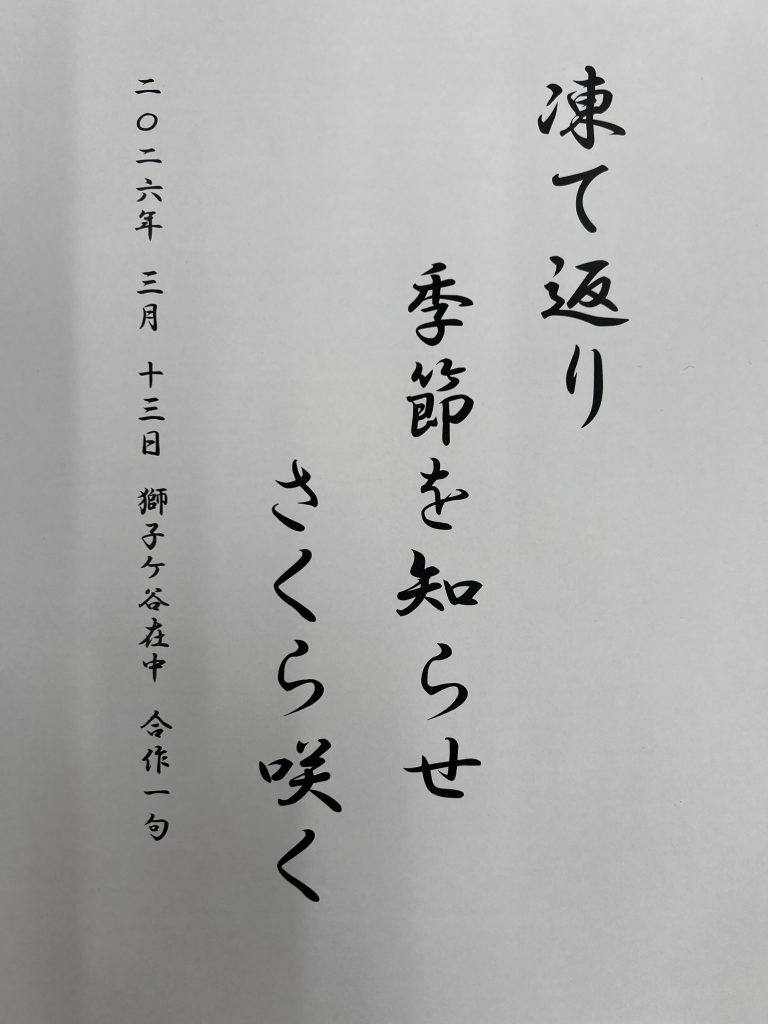 凍て返り
季節を知らせ
さくら咲く
二〇二六年　三月　十三日　獅子ケ谷在中　合作一句